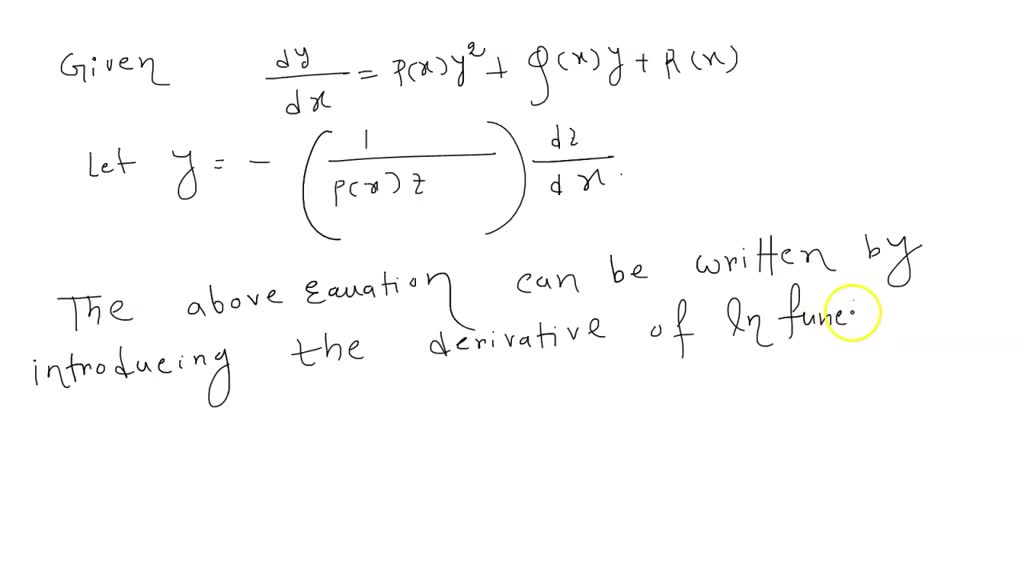 Given dy/dx = P(x)y² + Q(x)y + R(x)
Let y = - (1/P(x)z) dz/dx.
The above Equation can be written by
introducing the derivative of ln func